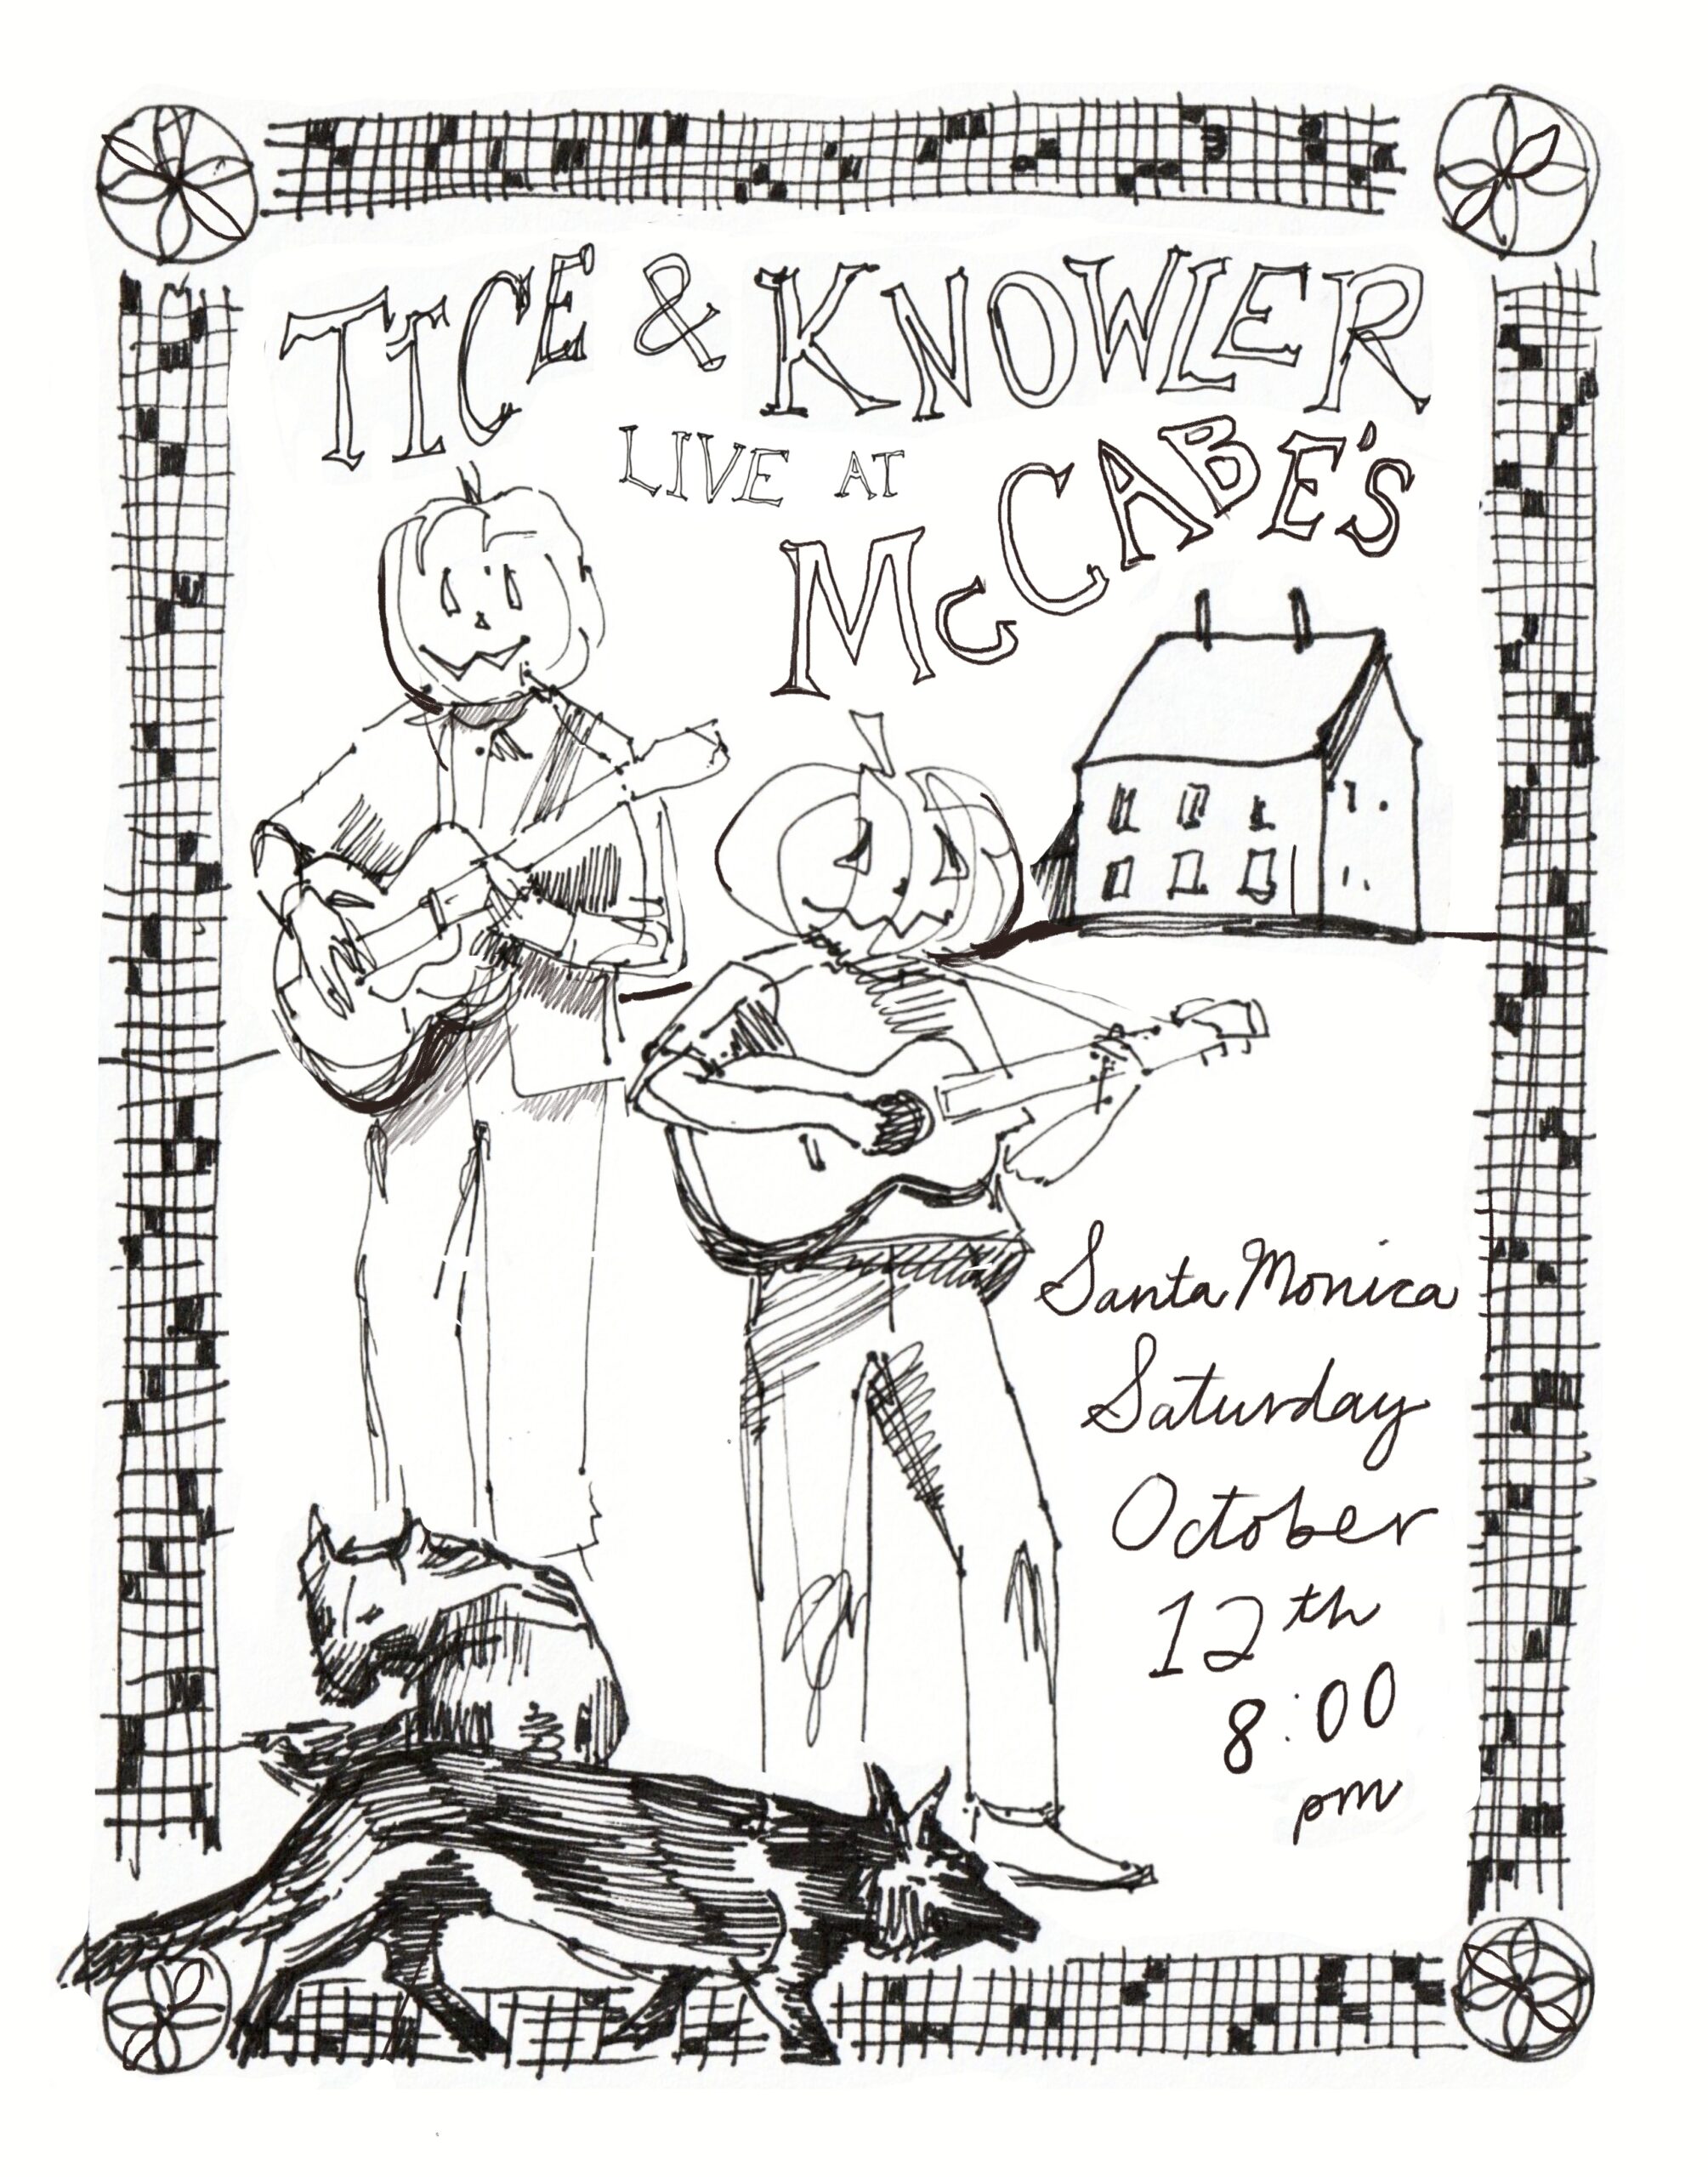 TICE & KNOWLER
LIVE AT
McCABE'S
Santa Monica
Saturday
October
12th
8:00
pm